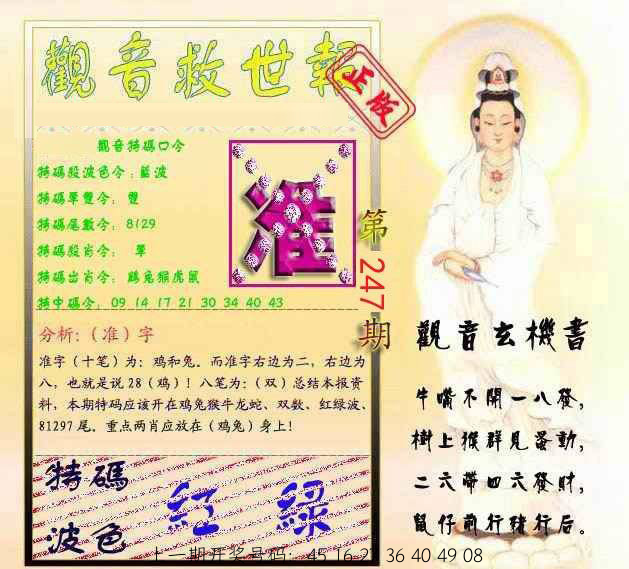 觀音救世報
正版
觀音特碼口令
特碼殺波色令：藍波
特碼單雙令：雙
特碼尾數令：8129
特碼殺肖令：單
特碼出肖令：鷄兔猴虎鼠
特中碼令：09 14 17 21 30 34 40 43
准
第247期
分析:（准）字
准字（十笔）为：鸡和兔。而准字右边为二，右边为
八，也就是说28（鸡）！八笔为:（双）总结本报资
料，本期特码应该开在鸡兔猴牛龙蛇、双数、红绿波、
81297尾。重点两肖应放在（鸡兔）身上！
特碼
波色
紅 綠
觀音玄機書
牛嘴不開一八發，
樹上猴群見蛋動，
二六帶四六發財，
鼠仔前行豬行后。
上一期开奖号码：45 16 27 36 40 49 08